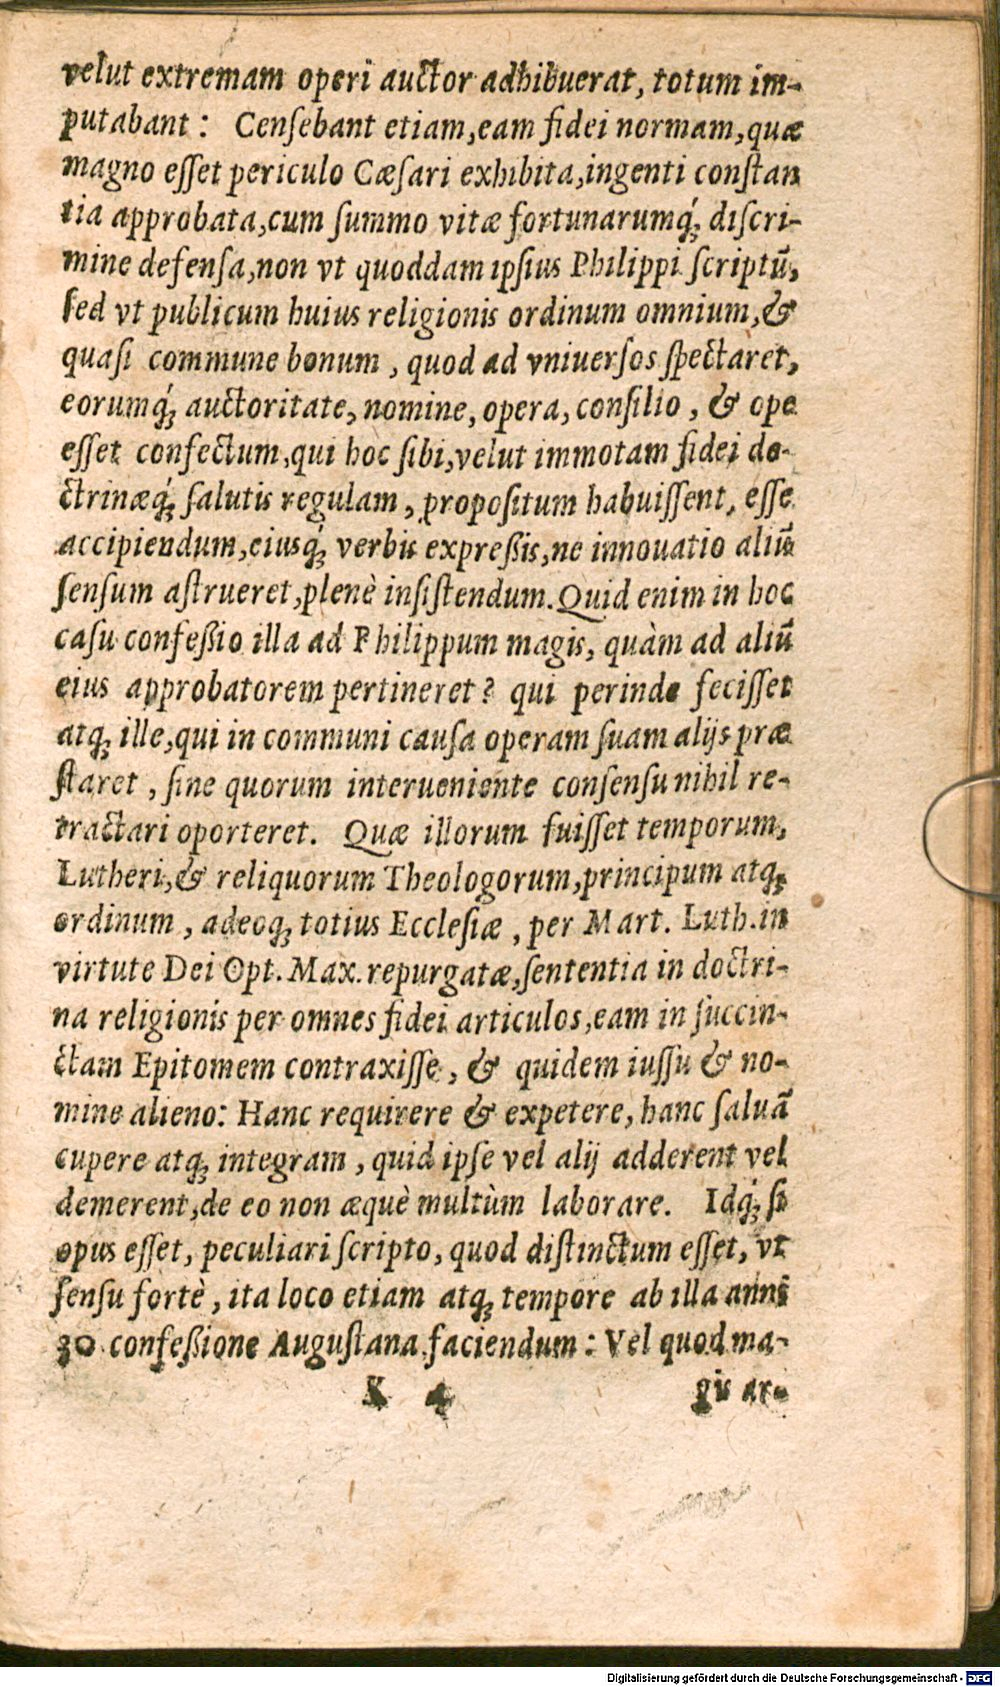 velut extremam operi auctor adhibuerat, totum im-
putabant: Censebant etiam,eam fidei normam,quæ
magno esſet periculo Cæſari exhibita,ingenti conſtan
tia approbata,cum ſummo vitæ fortunarumq́; diſcri-
mine defenſa,non vt quoddam ipſius Philippi ſcriptū,
ſed vt publicum huius religionis ordinum omnium,&
quaſi commune bonum , quod ad vniuerſos ſpectaret,
eorumq́; auctoritate, nomine, opera, conſilio , & ope
eſſet confectum,qui hoc ſibi,velut immotam fidei do-
ctrinæq́; ſalutis regulam , propoſitum habuiſſent, eſſe
accipiendum,eiusq́; verbis expreßis,ne innouatio aliū
ſenſum aſtrueret,plenè inſiſtendum.Quid enim in hoc
caſu confeßio illa ad Philippum magis, quàm ad aliū
eius approbatorem pertineret? qui perinde feciſſet
atq; ille,qui in communi cauſa operam ſuam alijs præ
ſtaret , ſine quorum interueniente conſenſu nihil re-
tractari oporteret. Quæ illorum fuiſſet temporum,
Lutheri,& reliquorum Theologorum,principum atq;
ordinum , adeoq; totius Eccleſiæ , per Mart. Luth.in
virtute Dei Opt.Max.repurgatæ,ſententia in doctri-
na religionis per omnes fidei articulos,eam in ſuccin-
ctam Epitomem contraxiſſe , & quidem iuſſu & no-
mine alieno: Hanc requirere & expetere, hanc ſaluā
cupere atq; integram , quid ipſe vel alij adderent vel
demerent,de eo non æquè multùm laborare. Idq́; ſi
opus eſſet, peculiari ſcripto, quod diſtinctum eſſet, vt
ſenſu fortè , ita loco etiam atq; tempore ab illa anni
30 confeßione Auguſtana faciendum: Vel quod ma-
X 4 gis ar-
Digitalisierung gefördert durch die Deutsche Forschungsgemeinschaft - DFG